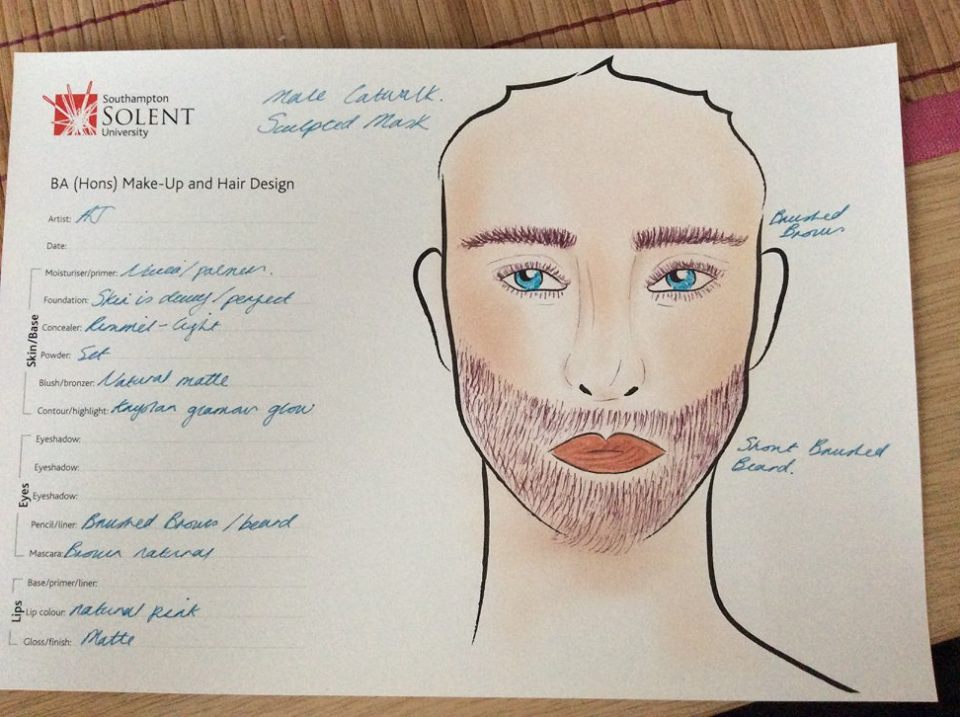 Southampton
SOLENT
University
Male Catwalk.
Sculpted Mask
BA (Hons) Make-Up and Hair Design
Artist: AJ
Date:
Skin/Base
Moisturiser/primer: Nivea/palmers.
Foundation: Skin is dewy/perfect
Concealer: Rimmel - light
Powder: Set
Blush/bronzer: Natural matte
Contour/highlight: Kryolan glamour glow
Eyes
Eyeshadow:
Eyeshadow:
Eyeshadow:
Pencil/liner: Brushed Brows/beard
Mascara: Brown natural
Lips
Base/primer/liner:
Lip colour: natural pink
Gloss/finish: Matte
Brushed
Brows
Short Brushed
Beard.